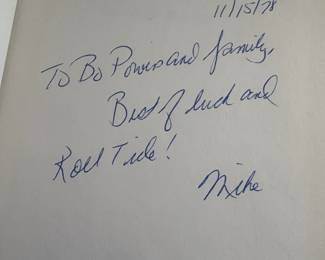 11/15/78
To Bo Powers and family,
Best of luck and
Roll Tide!
Mike